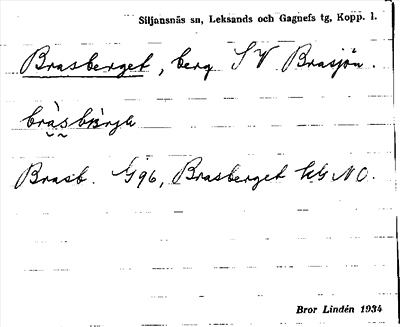 Siljansnäs sn, Leksands och Gagnefs tg, Kopp. l.
Brasberget, berg SV Brasjön.
Brasb. G96, Brasberget kG NO.
Bror Lindén 1934